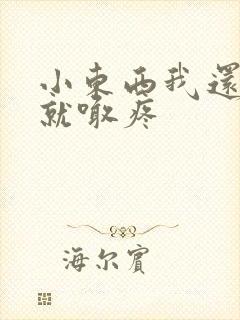 小東西我還
就噉疼
海尔賓